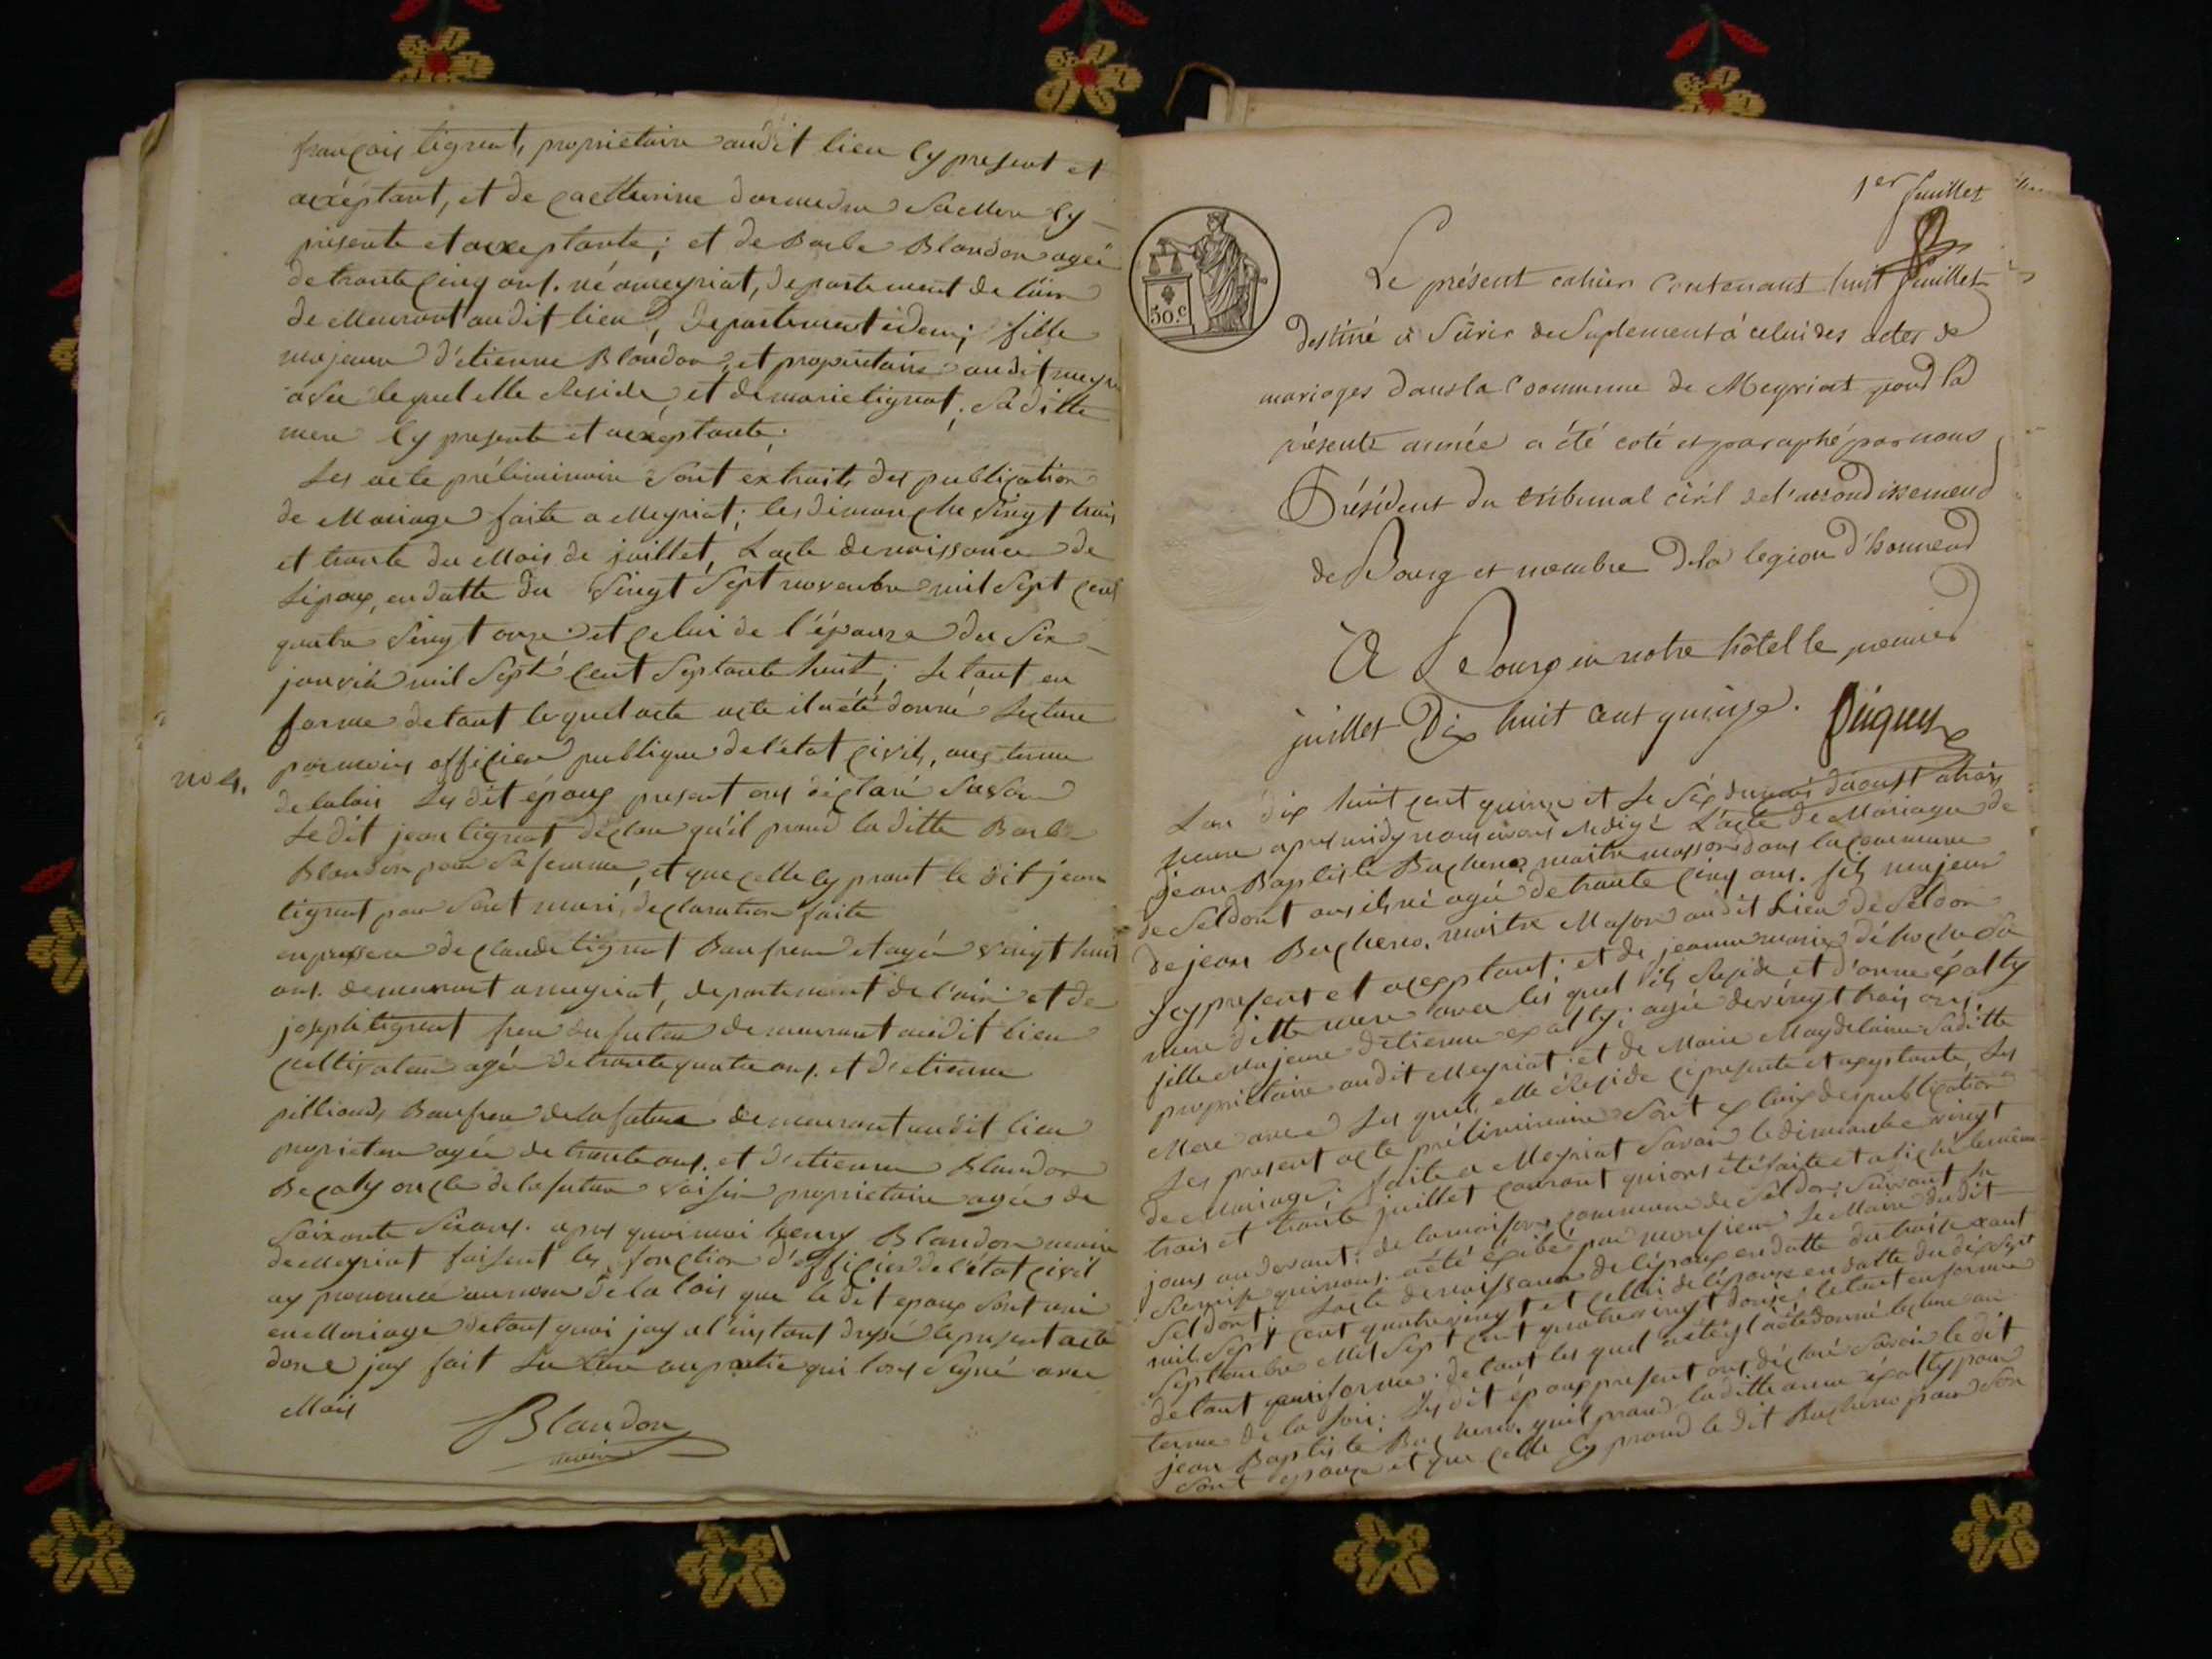 françois tignat, proprietaire audit lieu Cy present et
acceptant, et de Catherine sa Mere Cy
presente et acceptante; et de Barbe Blandon agée
de trante Cinq ans. né a meyriat, departement de l'ain
de meurant audit lieu, departement idem; fille
majeure d'etienne Blandon, et proprietaire audit
avec lequel elle Reside, et de marie tignat, Sa ditte
mere Cy presente et acceptante;
Les acte préliminaire Sont extrait des publication
de Mariage faite a Meyriat; les dimanche vingt trois
et trante du Mois de juillet, Lacte de naissance de
Lépoux, en datte du vingt Sept novembre mil Sept Cent
quatre vingt onze et Celui de l'épouze du Six
janvié mil Sept Cent Septante huit; Le tout en
forme de tout lequel acte acte il a été donné Lecture
par mois officier publique de l'état Civils, aux terme
no 4.
de la lois Les dit époux present ons déclaré Savoir
Le dit jean tignat déclare qu'il prand la ditte Barbe
Blandon pour Sa femme, et que celle Cy prant le dit jean
tignat pour Sont mari, declaration faite
en presence de Claude tignat Baufrere et agée vingt huit
ans. demeurant a meyriat, departement de l'ain et de
joseph tignat frere du futeur demeurant audit lieu
Cultivateur agée de trante quatre ans. et d'etienne
pilliond, Baufrere de la future demeurant audit lieu
proprietere agée de trante ans. et d'etienne Blandon
Becaty oncle de la future voisin proprietaire agée de
Soixante Six ans. apres quoi moi henry Blandon maire
de Meyriat faisent les fonction d'officier de l'état Civil
ay prononcé au nom de la lois que le dit epoux Sont uni
en Mariage de tout quoi jay a l'instant dressé le present acte
dont jay fait Lecture au partie qui lons Signé avec
Mois
Blandon
maire
1er feuillet
Le présent cahier Contenant huit feuillets
destiné à Sérvir de Suplement à celui des actes de
mariages dans la Commune de Meyriat pour la
présente année a été coté et paraphé par nous
Président du tribunal civil de l'arrondissement
de Bourg et membre de la legion d'honneur
50.c
A Bourg en notre hôtel le premier
juillet Dix huit Cent quinze.
L'an dix huit Cent quinze et Le Six du mois d'aoust a trois
heure apres midy nous avons Redigé L'acte de Mariage de
jean Baptiste Bucheno, maitre masson dans la Commune
de Seldont ou il né agée de trante Cinq ans. fils majeur
de jean Bucheno, maitre Mason audit Lieu de Seldon
Cy present et acceptant; et de jeanne marie Sa
mere ditte mere avec les quel ils Reside et d'anne
fille Majeure d'etienne agée de vingt trois ans.
proprietaire audit Meyriat et de Marie Magdelaine Saditte
Mere avec Les quel, elle Reside Ci presente et aceptante, Les
Les present acte préliminaire Sont des publication
de Mariage; faite a Meyriat Savoir le dimanche vingt
trois et trante juillet Courant qui ons été faite
jours au devant; de la maison Commune de Seldon; Suivant la
Remise qui nous. a été éxibée par monsieur Le Maire dudit
Seldont; Lacte de naissance de lépoux en datte du
mil Sept Cent quatre vingt et Celui de lépouze en datte du dix Sept
Septembre Mil Sept Cent quatre vingt douze, le tout en forme
de tout en forme. de tout les quel acte il a été donné lecture au
terme de la lois. Les dit époux present ons déclaré Savoir le dit
jean Baptiste Bucheno. qu'il prand la ditte anne pour
Sont épouze et que Celle Cy prand le dit Bucheno pour Son